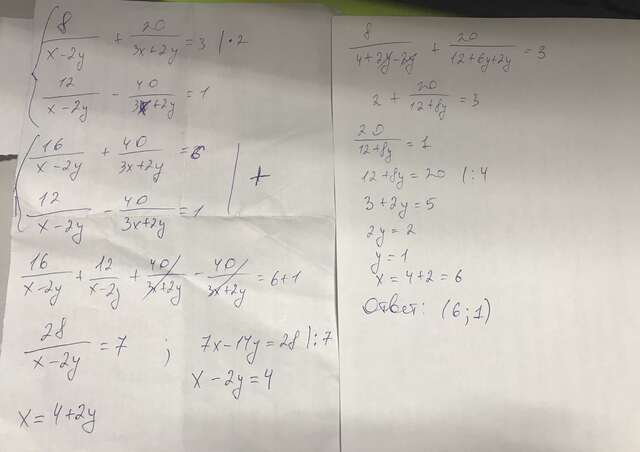 8/(x-2y) + 20/(3x+2y) = 3 | ·2
12/(x-2y) - 40/(3x+2y) = 1
16/(x-2y) + 40/(3x+2y) = 6
12/(x-2y) - 40/(3x+2y) = 1 | +
16/(x-2y) + 12/(x-2y) + 40/(3x+2y) - 40/(3x+2y) = 6+1
28/(x-2y) = 7 ; 7x-14y = 28 |:7
x - 2y = 4
x = 4+2y
8/(4+2y-2y) + 20/(12+6y+2y) = 3
2 + 20/(12+8y) = 3
20/(12+8y) = 1
12+8y = 20 |:4
3+2y = 5
2y = 2
y = 1
x = 4+2 = 6
Ответ: (6;1)